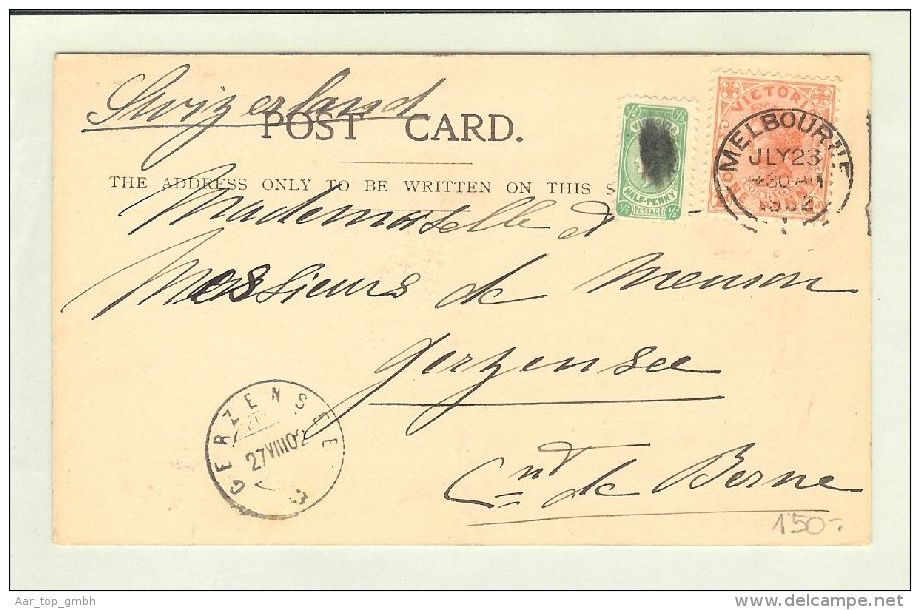 Switzerland
POST CARD.
THE ADDRESS ONLY TO BE WRITTEN ON THIS S
Mademoiselle et
Messieurs de
Gerzensee
Cnt de Berne
½ VICTORIA ½
HALF-PENNY
½ POSTAGE ½
VICTORI
MELBOURNE
JLY 23
1902
GERZENSEE
27 VIII 02
150.-
Aar_top_gmbh
www.delcampe.net